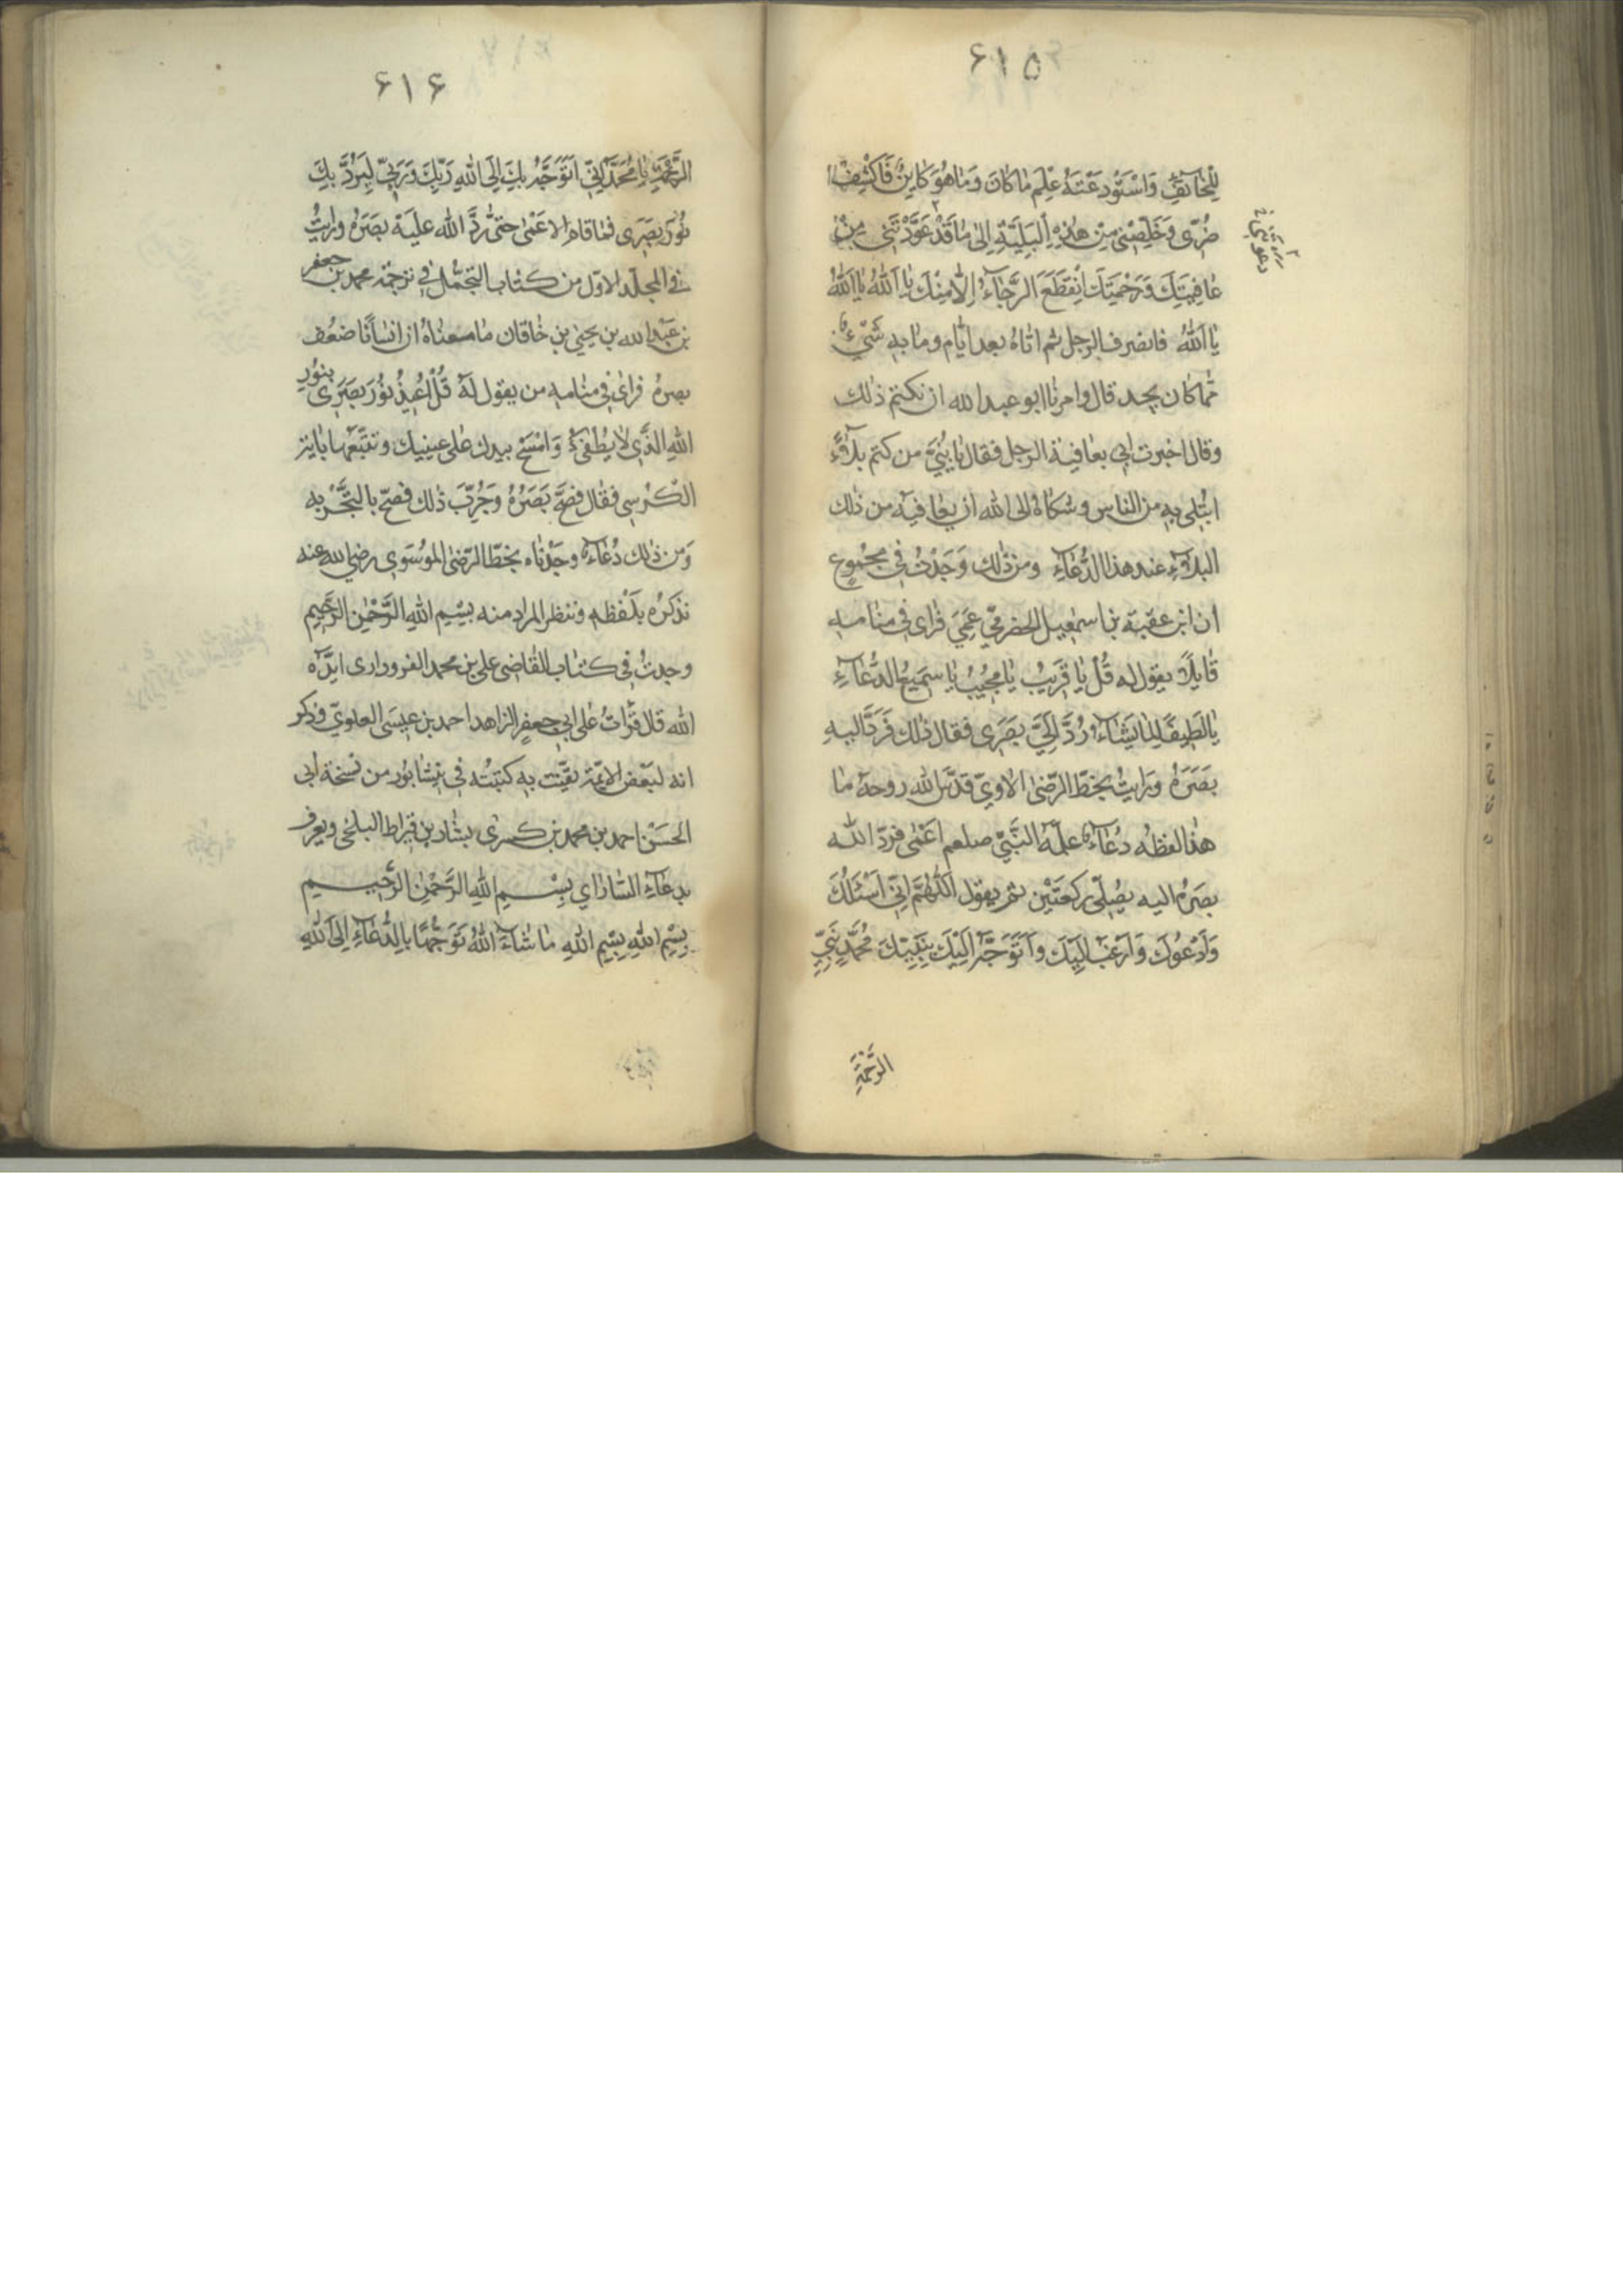 ۶۱۵
لِلْخَائِفِ وَاسْتَوْدَعْتَهُ عِلْمَ مَا كَانَ وَمَا هُوَ كَايِنٌ فَاكْشِفْ
ضُرّى وَخَلِّصْنى مِنْ هٰذِهِ الْبَلِيَّةِ اِلىٰ مَا قَدْ عَوَّدْتَنى مِنْ
عَافِيَتِكَ وَرَحْمَتِكَ اِنْقَطَعَ الرَّجَاءُ اِلّا مِنْكَ يَا اَللهُ يَا اَللهُ
يَا اَللهُ فانصرف الرجل ثم اتاهُ بعد ايّام وما به شَىْءٌ
مما كان يجد قال وامرنا ابو عبد الله ان نكتم ذلك
وقال اخبرت ابى بعافية الرجل فقال يا بُنَىَّ من كتم بلاءً
ابتُلى به من الناس وشكاهُ الى الله ان يعافيه من ذلك
البلاءِ عند هذا الدُّعَاءِ ومن ذلك وَجَدْتُ فى مجمُوعٍ
ان ابن عقبة بن اسمٰعيل الحضرمىّ عَمِىَ فراى فى منامه
قايلاً يقول له قُلْ يا قَرِيبُ يا مُجِيبُ يا سَمِيعَ الدُّعَاءِ
يا لَطِيفًا لِمَا يَشَاءُ رُدَّ اِلَىَّ بَصَرِى فقال ذلك فَرَدَّ اليهِ
بَصَرَهُ ورَايتُ بخطّ الرّضىّ الاوىّ قدّس الله روحه ما
هذا لفظُه دُعَاءٌ علّمهُ النَّبِىّ صلعم اَعْمٰى فردّ الله
بصَرهُ اليه يُصَلّى رَكعَتَيْن ثم يقول اَللّٰهُمَّ اِنّى اَسْئَلُكَ
وَاَدْعُوكَ وَاَرْغَبُ اِلَيْكَ وَاَتَوَجَّهُ اِلَيْكَ بِنَبِيِّكَ مُحَمَّدٍ نَبِىِّ
الرَّحْمَةِ
۶۱۶
الرَّحْمَةِ يَا مُحَمَّدُ اِنّى اَتَوَجَّهُ بِكَ اِلَى اللهِ رَبِّكَ وَرَبّى لِيَرُدَّ بِكَ
نُورَ بَصَرِى فما قام الاعمى حتى رَدَّ الله عليه بصَرَهُ ورايتُ
فى المجلّد الاوّل من كتاب التجمُّل فى ترجمة محمد بن جعفر
بن عَبْدِ الله بن يحيى بن خاقان ما معناهُ ان انسانًا ضعُف
بصرهُ فراى فى منامه من يقول لهُ قُلْ اُعِيذُ نُورَ بَصَرِى بِنُورِ
اللهِ الذّى لا يُطْفىٰءُ وَامْسَحْ بيدك على عينيك وتتبعها باية
الكُرْسِى فقال فصَحَّ بَصَرُهُ وَجُرِّبَ ذلك فصَحّ بالتَّجْرِبه
وَمن ذلك دُعَاءٌ وجَدْناه بخطّ الرّضىّ الموُسَوى رضى الله عنه
نذكرُه بلَفْظهِ وننظر المراد منه بِسْمِ اللهِ الرَّحْمٰنِ الرَّحِيمِ
وجدتُ فى كتاب القاضى على بن محمد الفزودارى ايّدَه
الله قال قَرَاتُ على ابى جعفرٍ الزاهد احمد بن عيسَى العلوىّ وذكر
انه لبَعْض الائمّة كتبتُه فى نيشابُور من نسخة ابى
الحَسَنْ احمد بن محمد بن كسرى بشار بن قيراط البلخى ويعرف
بدعَاءِ السّاراى بِسْمِ اللهِ الرَّحْمٰنِ الرَّحِيمِ
بِسْمِ اللهِ بِسْمِ اللهِ مَا شَاءَ اللهُ تَوَجُّهًا بِالدُّعَاءِ اِلَى اللهِ